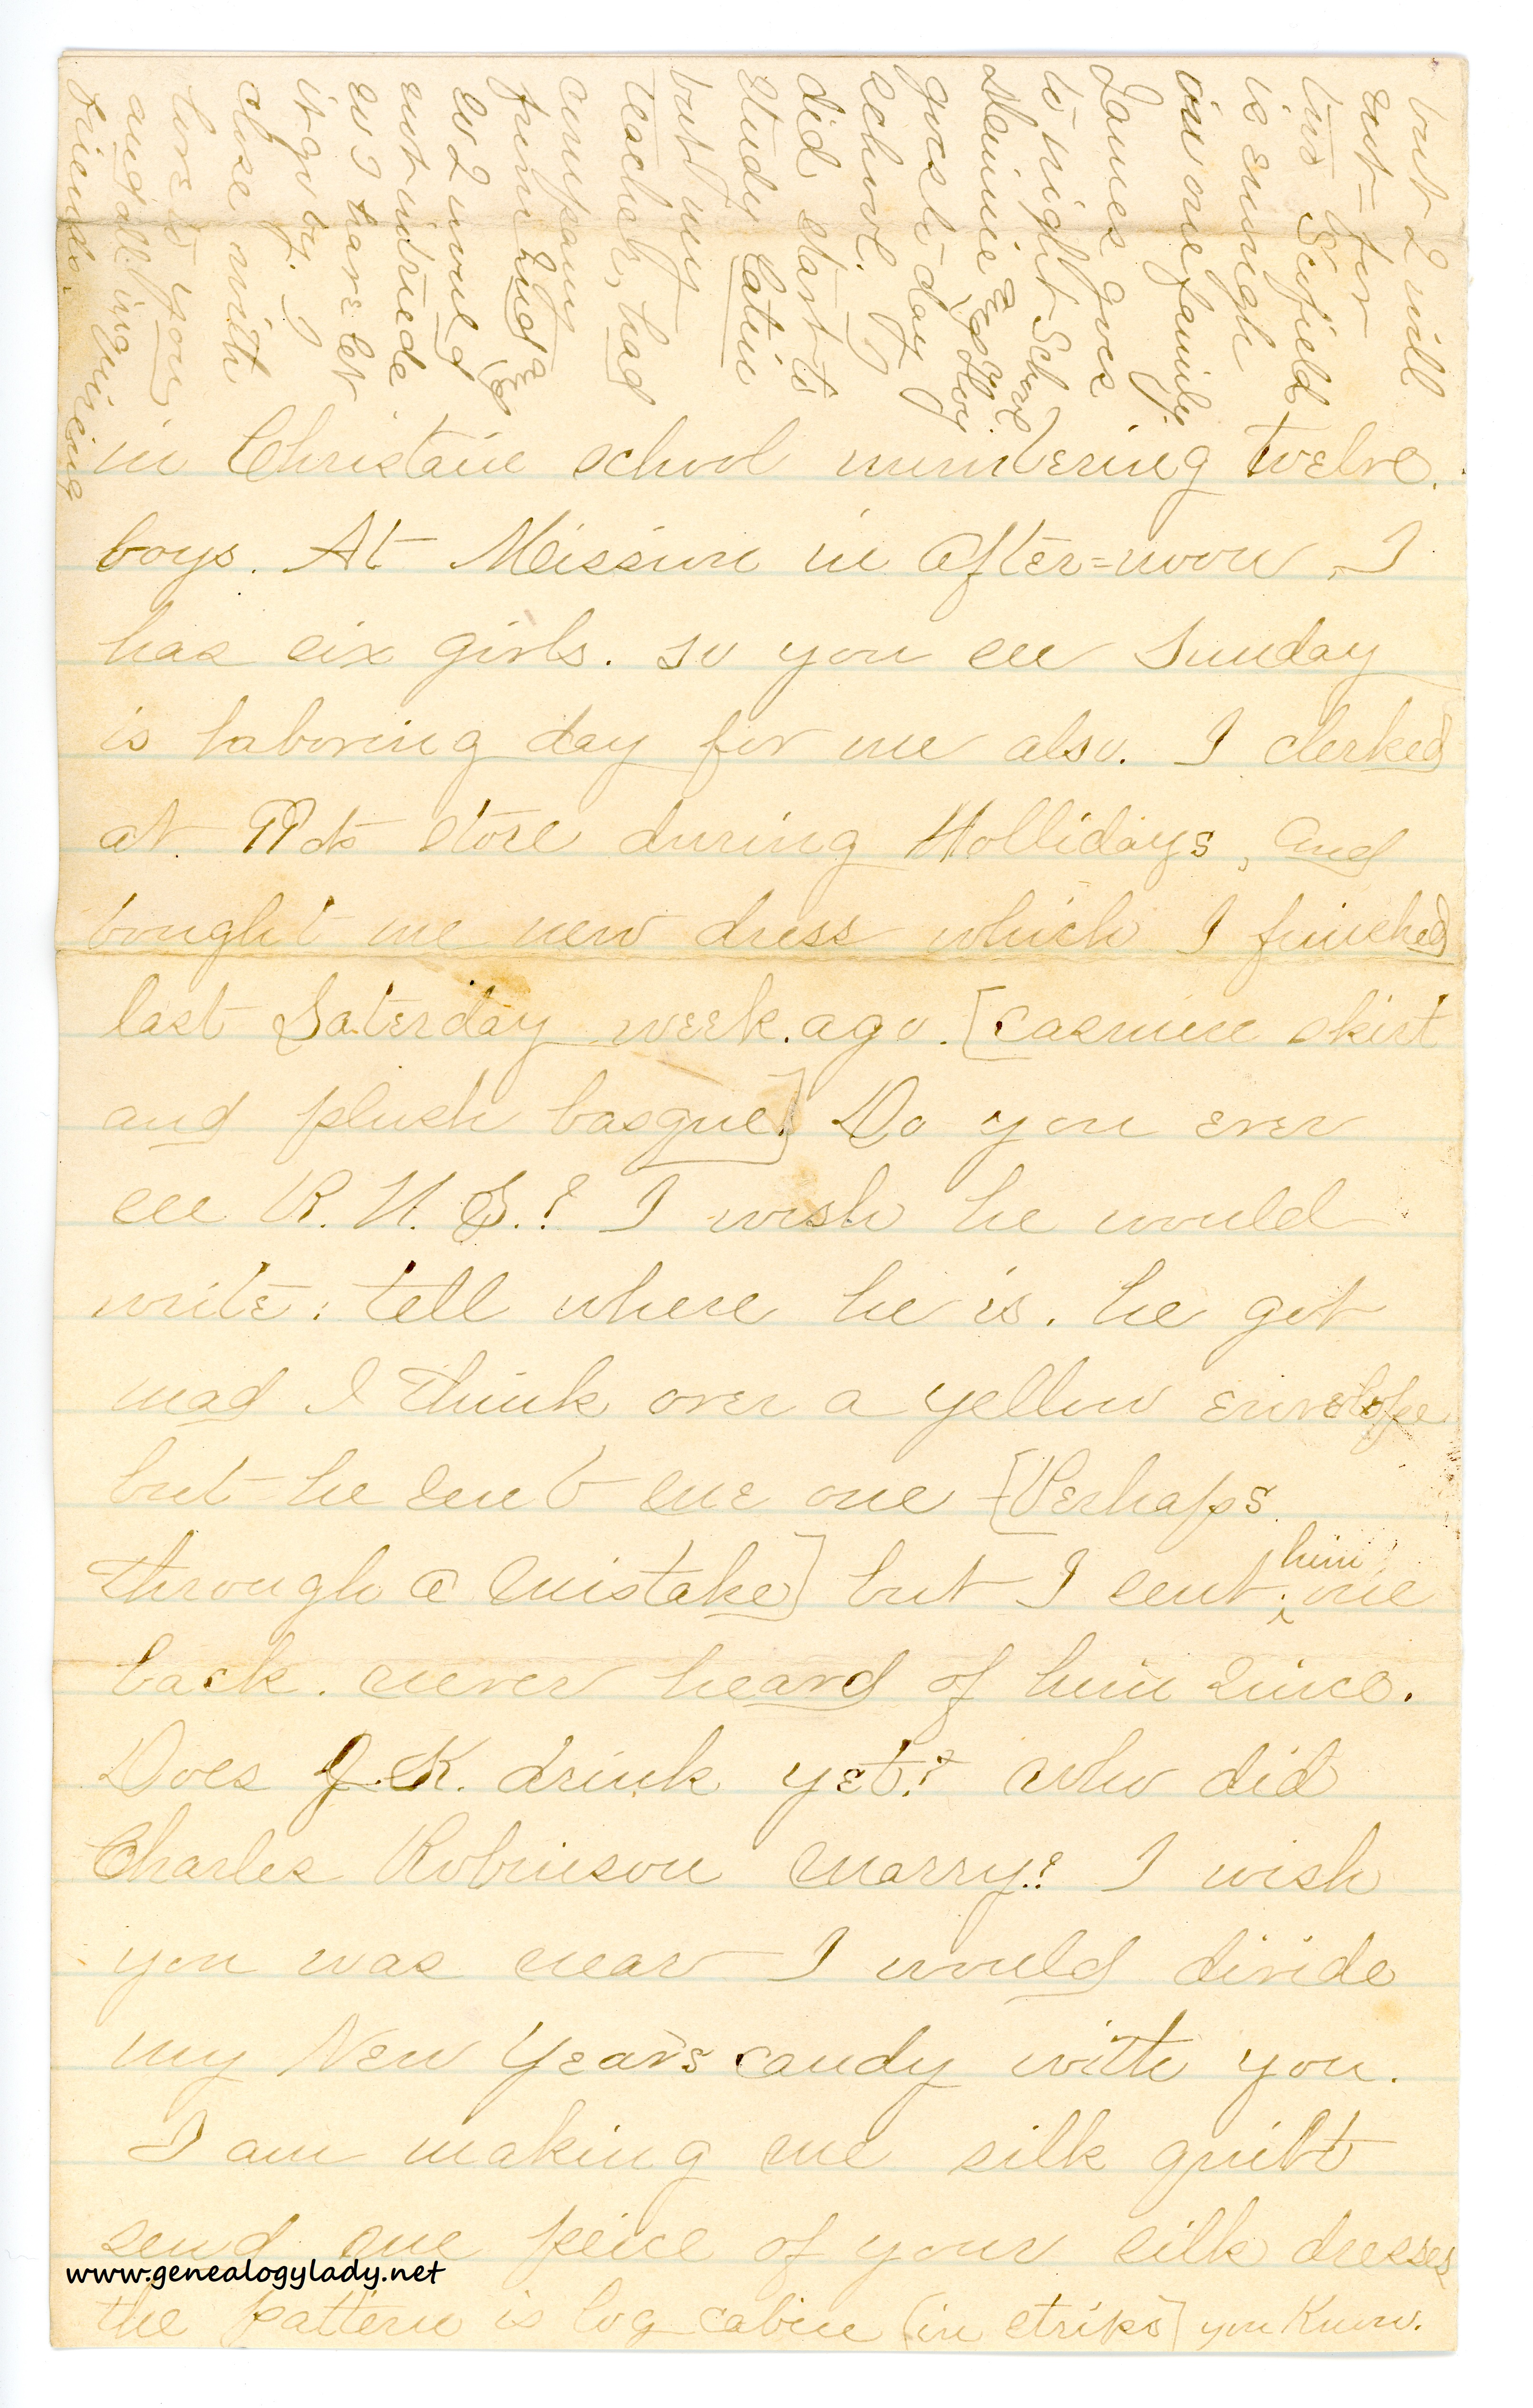 in Christain school numbering twelve
boys. At Mission in after=noon, I
has six girls. so you see Sunday
is laboring day for me also. I clerked
at 99 cts store during Hollidays, and
bought me new dress which I finished
last Saterday week.ago. [casmere skirt
and plush basque.] Do you ever
see R. H. S.? I wish he would
write: tell where he is. he got
mad I think over a yellow envelope
but he sent me one [Perhaps
through a mistake] but I sent him one
back. never heard of him since.
Does J. K. drink yet? who did
Charles Robinson marry? I wish
you was near I would divide
my New Years candy with you.
I am making me silk quilt
send me peice of your silk dresses
the pattern is log cabin (in strips] you know.
but I will
not for
two Scofield
is enough
in one family.
James goes
to night School
Mamie goes
goes to day
school. I
did start to
study latin
but my
teacher, had
company
from
so I would
not intrude
so I have let
it go by. I
close with
love to you
and all inquireing
friends.
www.genealogylady.net